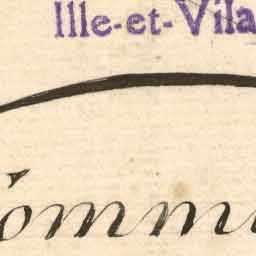 Ille-et-Vila
ommu